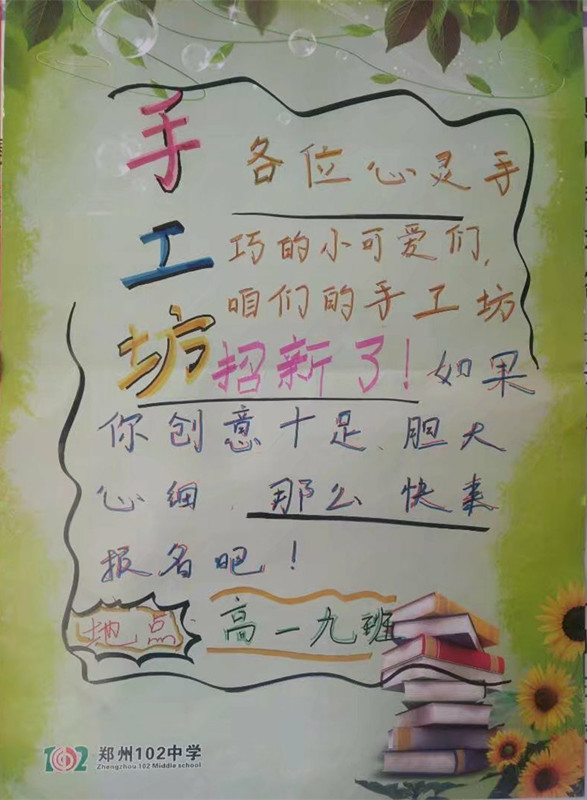 手工坊
各位心灵手
巧的小可爱们,
咱们的手工坊
招新了!如果
你创意十足、胆大
心细、那么快来
报名吧!
地点
高一九班
102 郑州102中学
Zhengzhou 102 Middle school